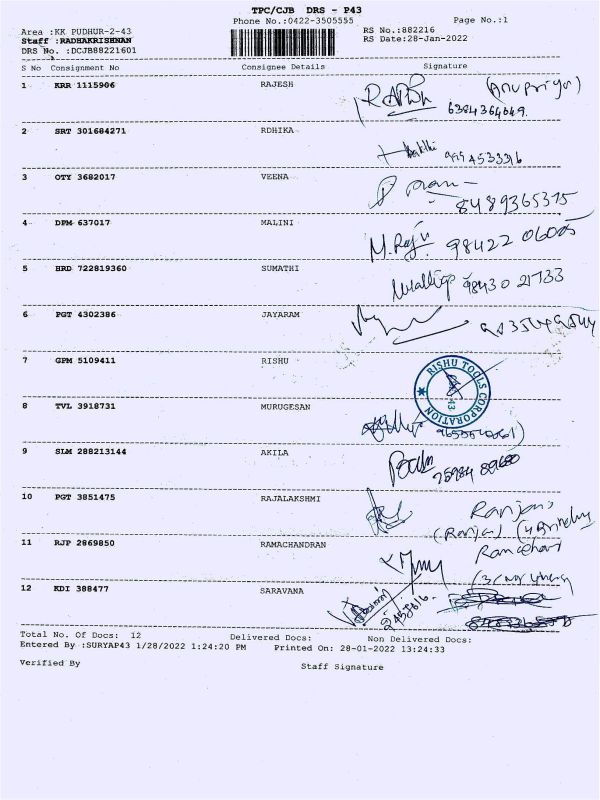 TPC/CJB DRS - P43
Phone No.:0422-3505555 Page No.:1
Area :KK PUDHUR-2-43 RS No.:882216
Staff :RADHAKRISHNAN RS Date:28-Jan-2022
DRS No. :DCJB88221601
S No Consignment No Consignee Details Signature
1 KRR 1115906 RAJESH (Anupriya)
6384364649.
2 SRT 301684271 RDHIKA
3 OTY 3682017 VEENA
8489365375
4 DPM 637017 MALINI M.Raji 98422 06005
5 HRD 722819360 SUMATHI 98430 21733
6 PGT 4302386 JAYARAM
7 GPM 5109411 RISHU RISHU TOOLS CORPORATION
43
8 TVL 3918731 MURUGESAN
9 SLM 288213144 AKILA
10 PGT 3851475 RAJALAKSHMI Ranjani
11 RJP 2869850 RAMACHANDRAN
12 KDI 388477 SARAVANA
Total No. Of Docs: 12 Delivered Docs: Non Delivered Docs:
Entered By :SURYAP43 1/28/2022 1:24:20 PM Printed On: 28-01-2022 13:24:33
Verified By Staff Signature